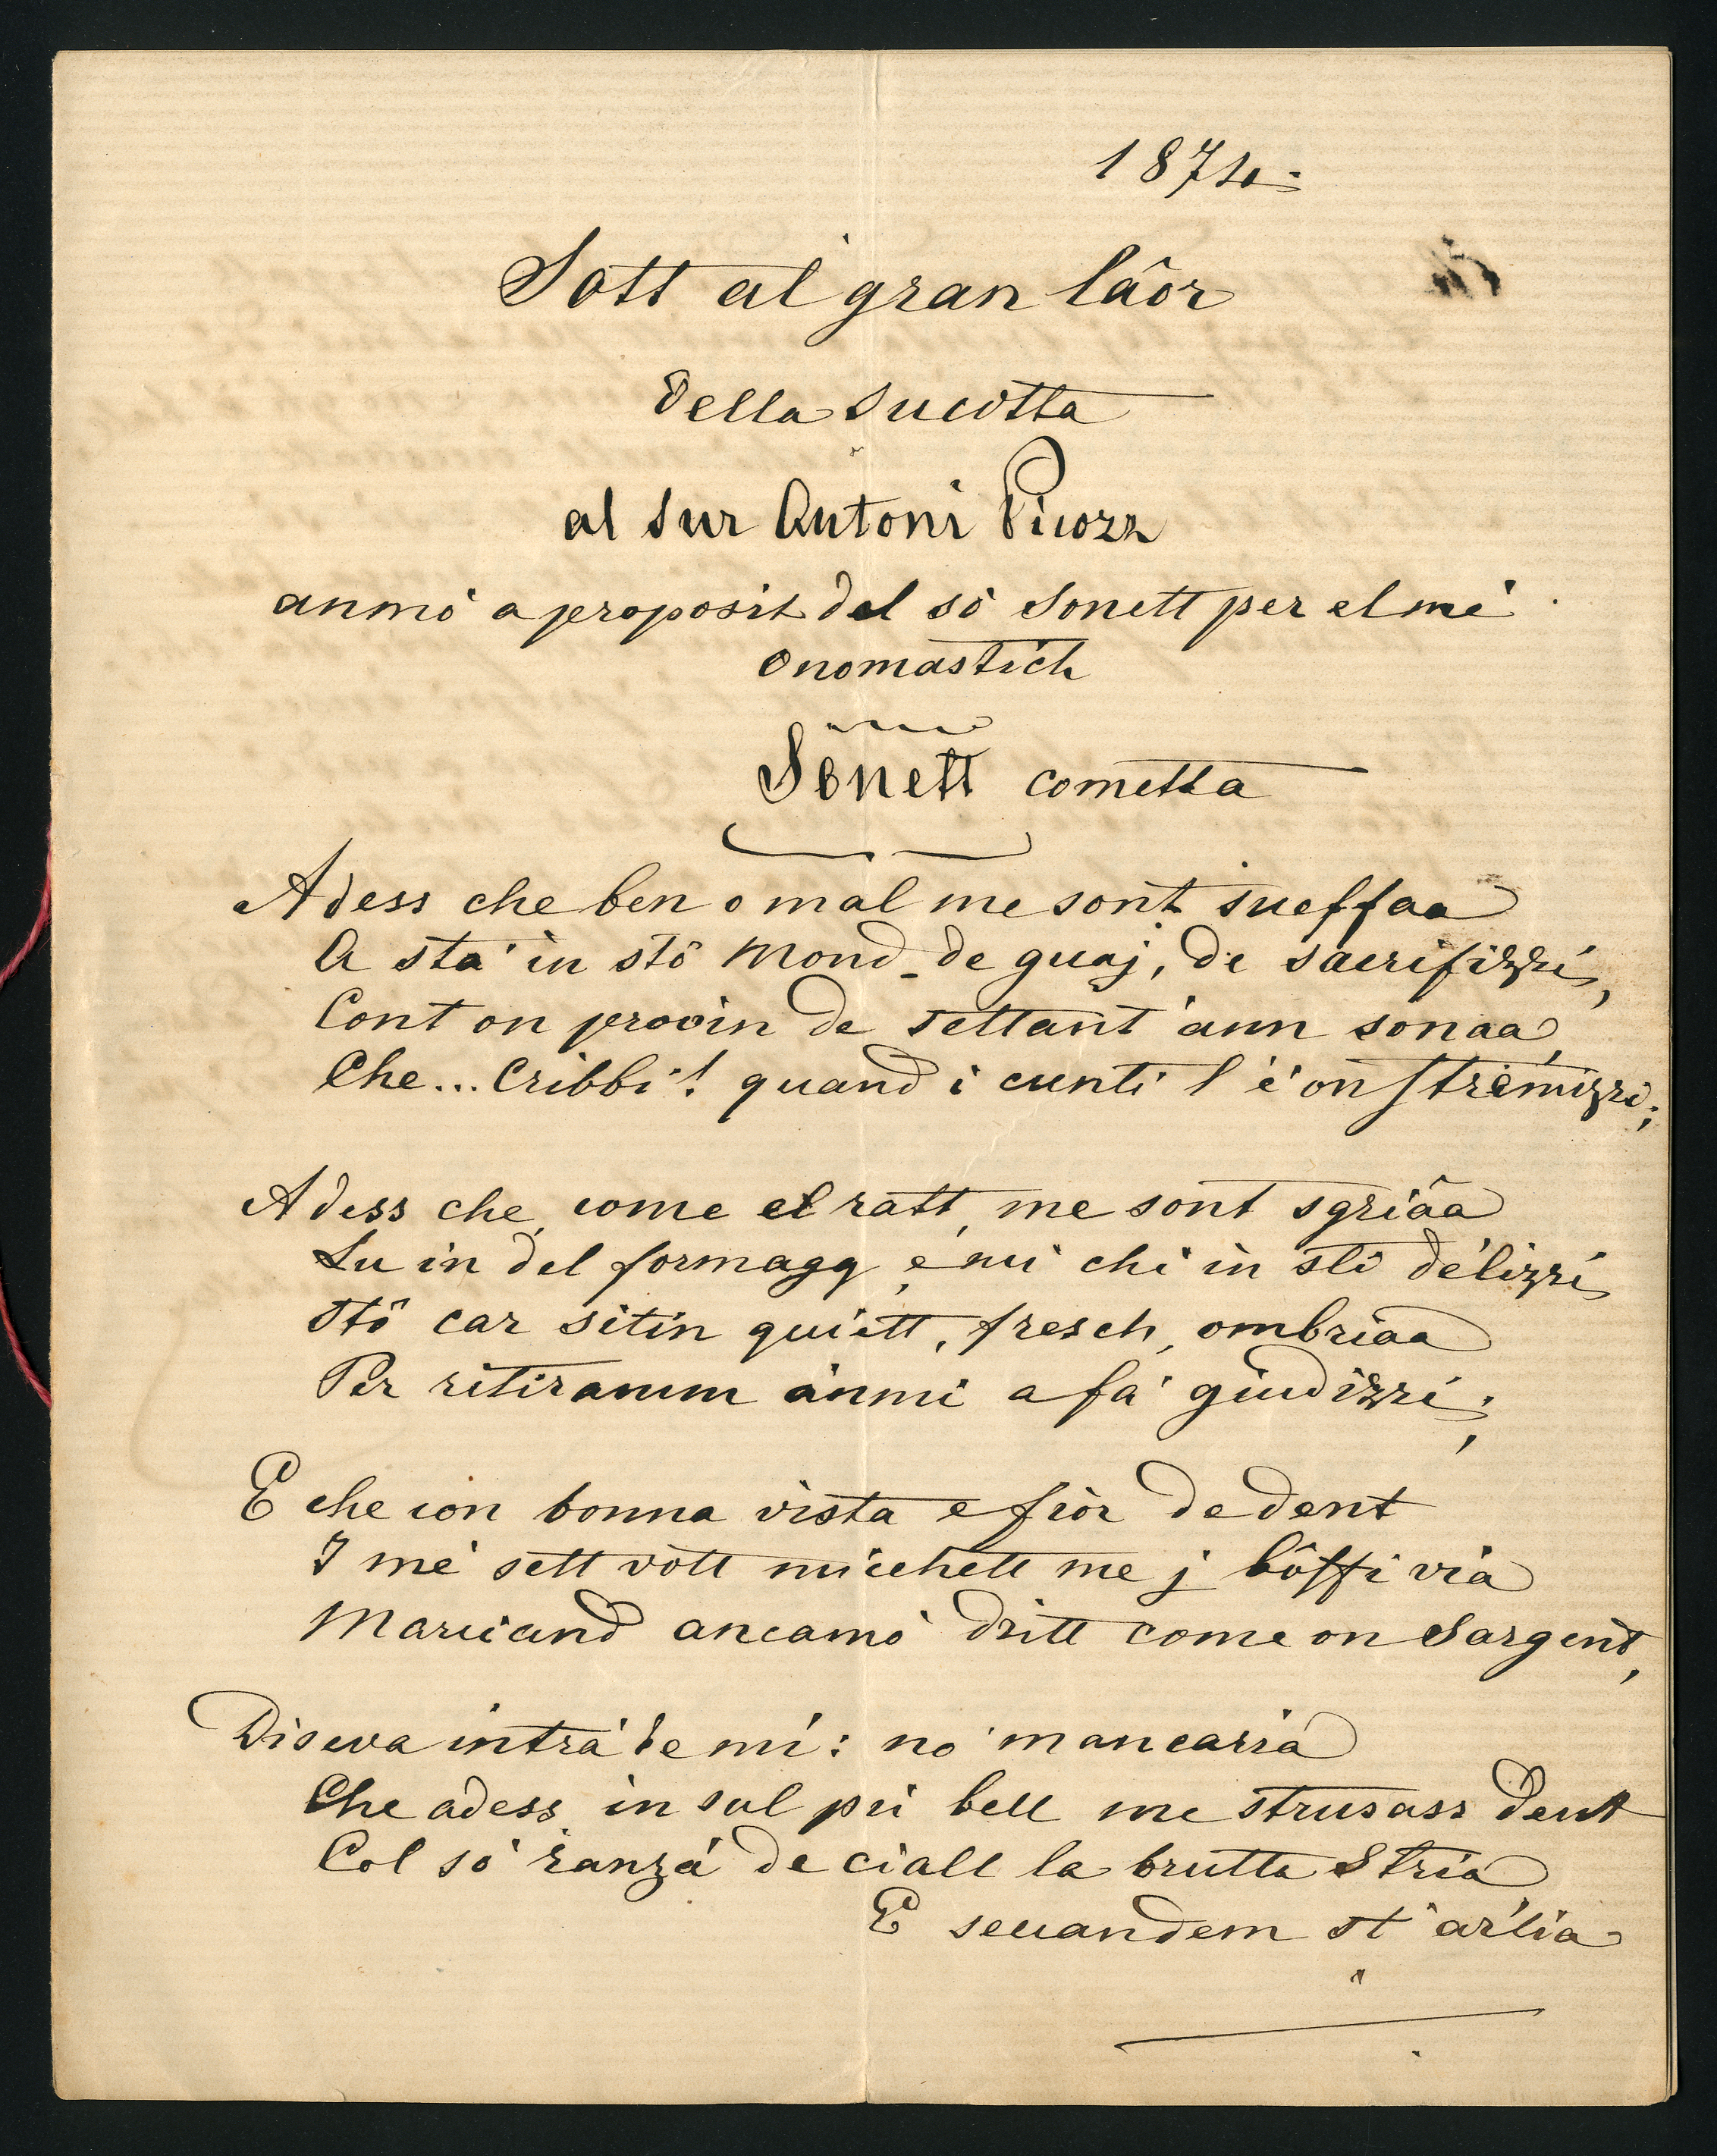 1874.
Sott al gran lâor
della Sucòtta
al Sur Antoni Picozz
anmò a proposit del sò Sonett per el mè
onomastich
Sonett cometta
Adess che ben o mal me sont sueffaa
A stà in stò Mond de guaj, de sacrifizzi,
Cont on provin de settant'ann sonaa,
Che... Cribbi! quand i cunti l'è on stremizzi;
Adess che, come el ratt, me sont sgriâa
Lu in del formagg, e mi chì in sti delizzi
Stô car sitin quiett, fresch, ombriaa
Per ritiramm anmi a fà giudizzi;
E che con bonna vista e fior de dent
I mè sett vott micchett me j bôffi via
Marciand ancamò dritt come on Sargent,
Diseva intrà de mì: nò mancarià
Che adess in sul pù bell me strusass dent
Col sò ranzà de ciall la brutta Stria
E seccandem st'arlia